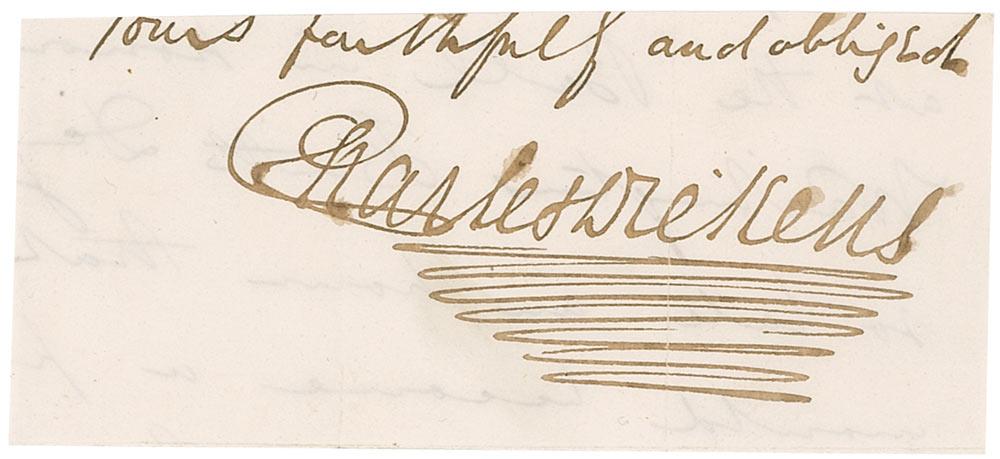 Yours faithfully and obliged
Charles Dickens